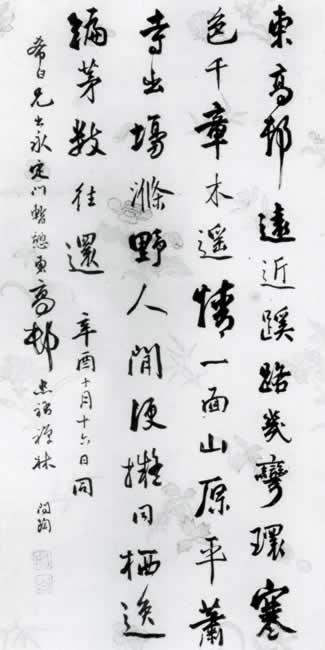 東高邨遠近蹊路幾彎環寒
色千章木遥情一面山原平蕭
寺出塲滌野人閒便擬同栖逸
編茅数往還 辛酉十月十六日同
希白兄出永定门暫憩東高邨 禪林 問陶